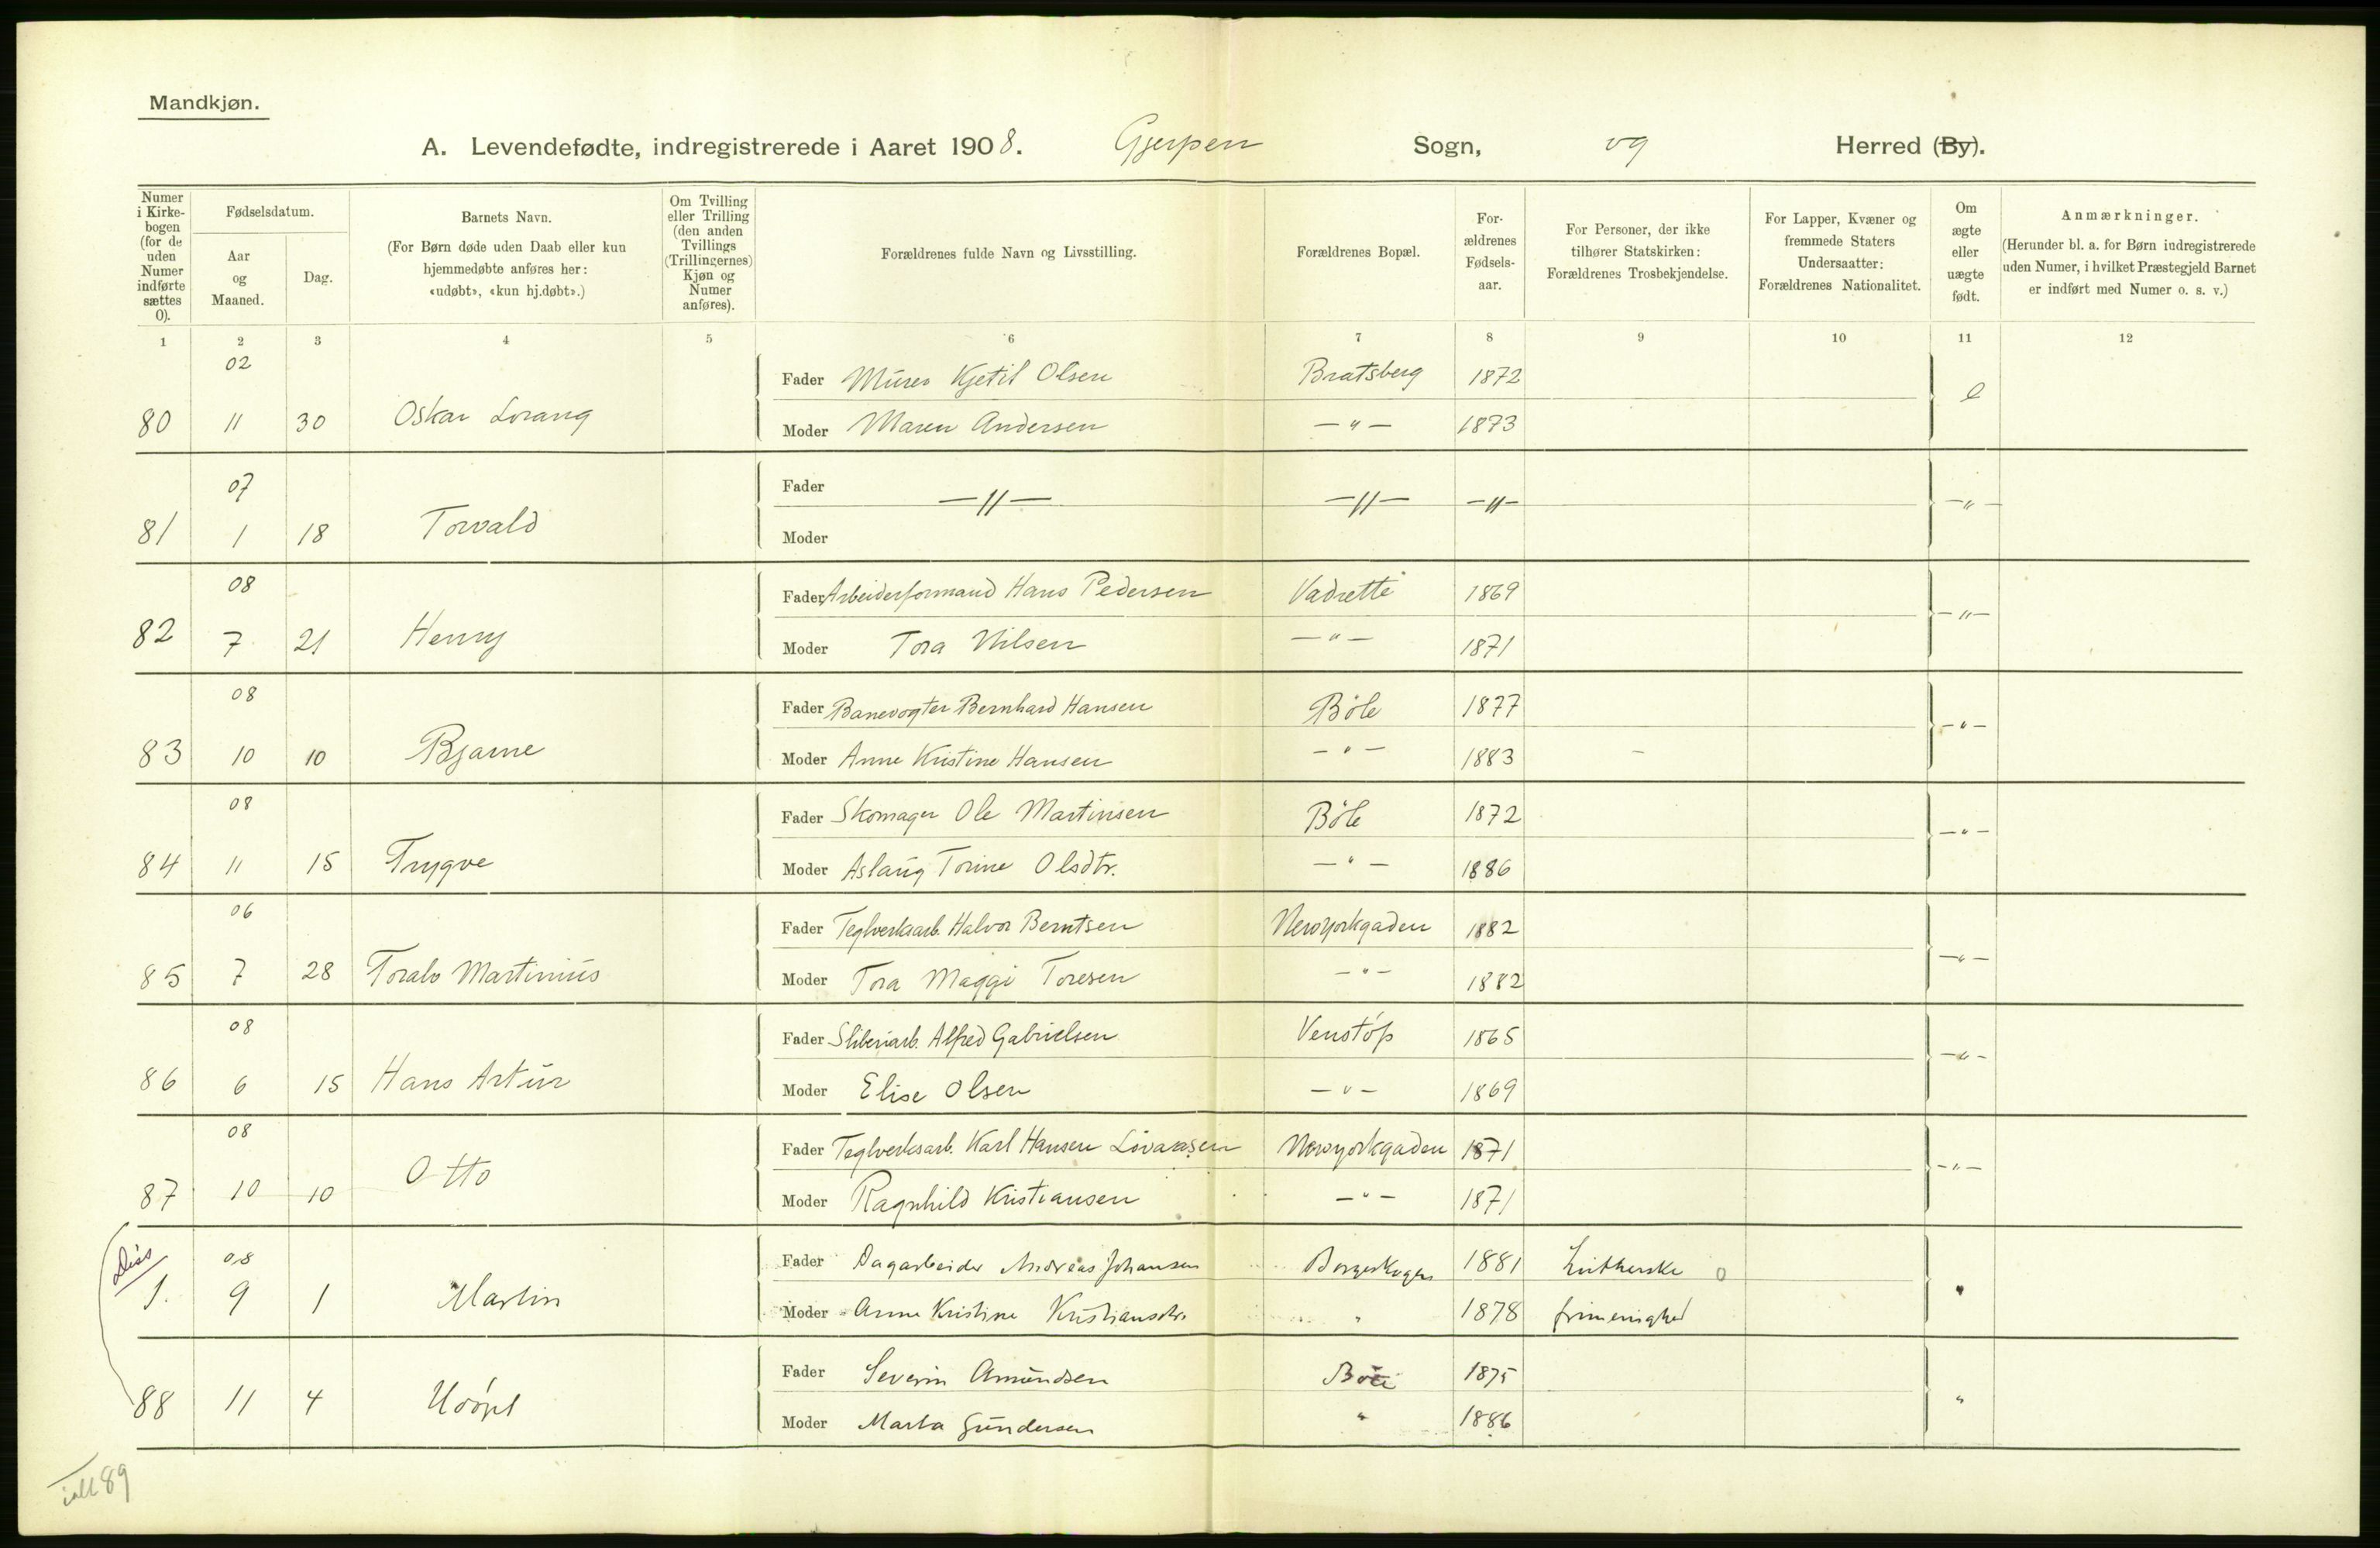 Mandkjøn.
A. Levendefødte, indregistrerede i Aaret 1908. Gjerpen Sogn, og Herred (By).
Numer i Kirke-bogen (for de uden Numer indførte sættes 0).
Fødselsdatum.
Aar og Maaned.
Dag.
Barnets Navn.
(For Børn døde uden Daab eller kun hjemmedøbte anføres her: «udøbt», «kun hj.døbt».)
Om Tvilling eller Trilling (den anden Tvillings (Trillingernes) Kjøn og Numer anføres).
Forældrenes fulde Navn og Livsstilling.
Forældrenes Bopæl.
For-ældrenes Fødsels-aar.
For Personer, der ikke tilhører Statskirken: Forældrenes Trosbekjendelse.
For Lapper, Kvæner og fremmede Staters Undersaatter: Forældrenes Nationalitet.
Om ægte eller uægte født.
Anmærkninger.
(Herunder bl. a. for Børn indregistrerede uden Numer, i hvilket Præstegjeld Barnet er indført med Numer o. s. v.)
1 2 3 4 5 6 7 8 9 10 11 12
02 Fader Murer Kjetil Olsen Bratsberg 1872 e
80 11 30 Oskar Lorang Moder Maren Andersen — " — 1873
07 Fader — " — — " — — " — — " —
81 1 18 Torvald Moder
08 Fader Arbeiderformand Hans Pedersen Vadrette 1869 — " —
82 7 21 Henry Moder Tora Nilsen — " — 1871
08 Fader Banevogter Bernhard Hansen Böle 1877 — " —
83 10 10 Bjarne Moder Anne Kristine Hansen — " — 1883
08 Fader Skomager Ole Martinsen Böle 1872 — " —
84 11 15 Trygve Moder Aslaug Torine Olsdtr. — " — 1886
06 Fader Teglverksarb. Halvor Berntsen Newyorkgaden 1882 — " —
85 7 28 Toralv Martinius Moder Tora Maggi Toresen — " — 1882
08 Fader Sliberiarb. Alfred Gabrielsen Venstöp 1865 — " —
86 6 15 Hans Artur Moder Elise Olsen — " — 1869
08 Fader Teglverksarb. Karl Hansen Lövaasen Newyorkgaden 1871 — " —
87 10 10 Otto Moder Ragnhild Kristiansen — " — 1871
Diss 08 Fader Dagarbeider Andreas Johansen 1881 Lutherske "
1. 9 1 Martin Moder Anne Kristine Kristiansdtr. " 1878 frimenighed
Fader Severin Amundsen Böle 1875 "
88 11 4 Udöpt Moder Marta Gundersen " 1886
ialt 89